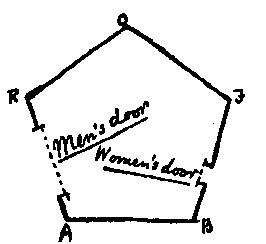 O
R
J
Men's door
Women's door
A
B